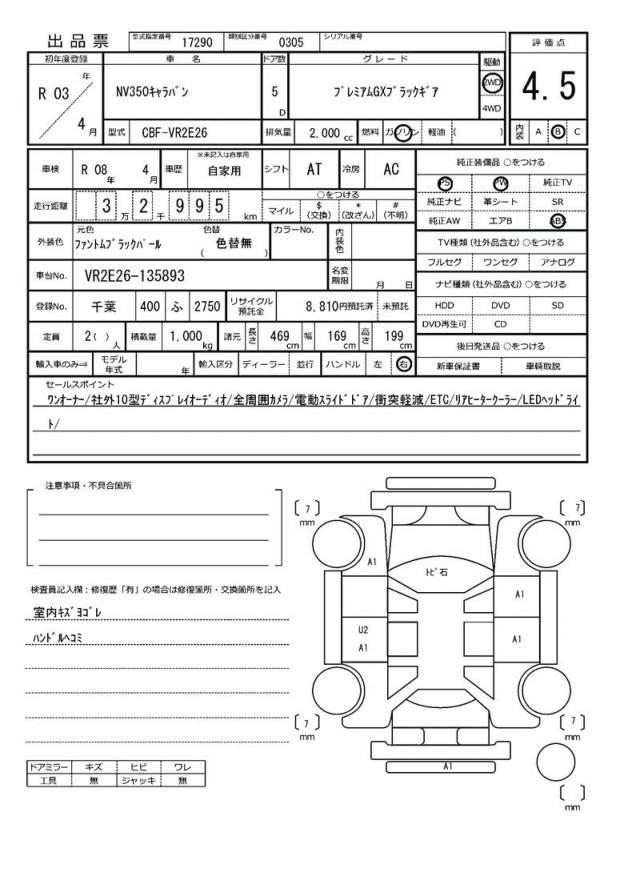 出品票 型式指定番号 17290 類別区分番号 0305 シリアル番号
初年度登録 車名 ドア数 グレード 駆動 評価点
R 03 年 4 月 NV350キャラバン 5 D プレミアムGXブラックギア 2WD 4WD 4.5
型式 CBF-VR2E26 排気量 2,000 cc 燃料 ガソリン 軽油 ( ) 内装 A B C
車検 R 08 年 4 月 車歴 ※未記入は自家用 自家用 シフト AT 冷房 AC 純正装備品 ○をつける
PS PW 純正TV
走行距離 3 万 2 千 9 9 5 km ○をつける マイル $ (交換) * (改ざん) # (不明) 純正ナビ 革シート SR
純正AW エアB ABS
外装色 元色 ファントムブラックパール 色替 ( 色替無 ) カラーNo. 内装色 TV種類 (社外品含む) ○をつける
フルセグ ワンセグ アナログ
車台No. VR2E26-135893 名変期限 月 日 ナビ種類 (社外品含む) ○をつける
登録No. 千葉 400 ふ 2750 リサイクル預託金 8,810円預託済 未預託 HDD DVD SD
DVD再生可 CD
定員 2( ) 人 積載量 1,000 kg 諸元 長さ 469 cm 幅 169 cm 高さ 199 cm 後日発送品 ○をつける
輸入車のみ⇒ モデル年式 年 輸入区分 ディーラー 並行 ハンドル 左 右 新車保証書 車輌取説
セールスポイント
ワンオーナー/社外10型ディスプレイオーディオ/全周囲カメラ/電動スライドドア/衝突軽減/ETC/リアヒータークーラー/LEDヘッドライ
ト/
注意事項・不具合箇所
検査員記入欄:修復歴「有」の場合は修復箇所・交換箇所を記入
室内キズヨゴレ
ハンドルヘコミ
ドアミラー キズ ヒビ ワレ
工具 無 ジャッキ 無
[ 7 ] mm [ 7 ] mm
A1
トビ石
A1
U2
A1
A1
[ 7 ] mm [ 7 ] mm
A1
[ ] mm